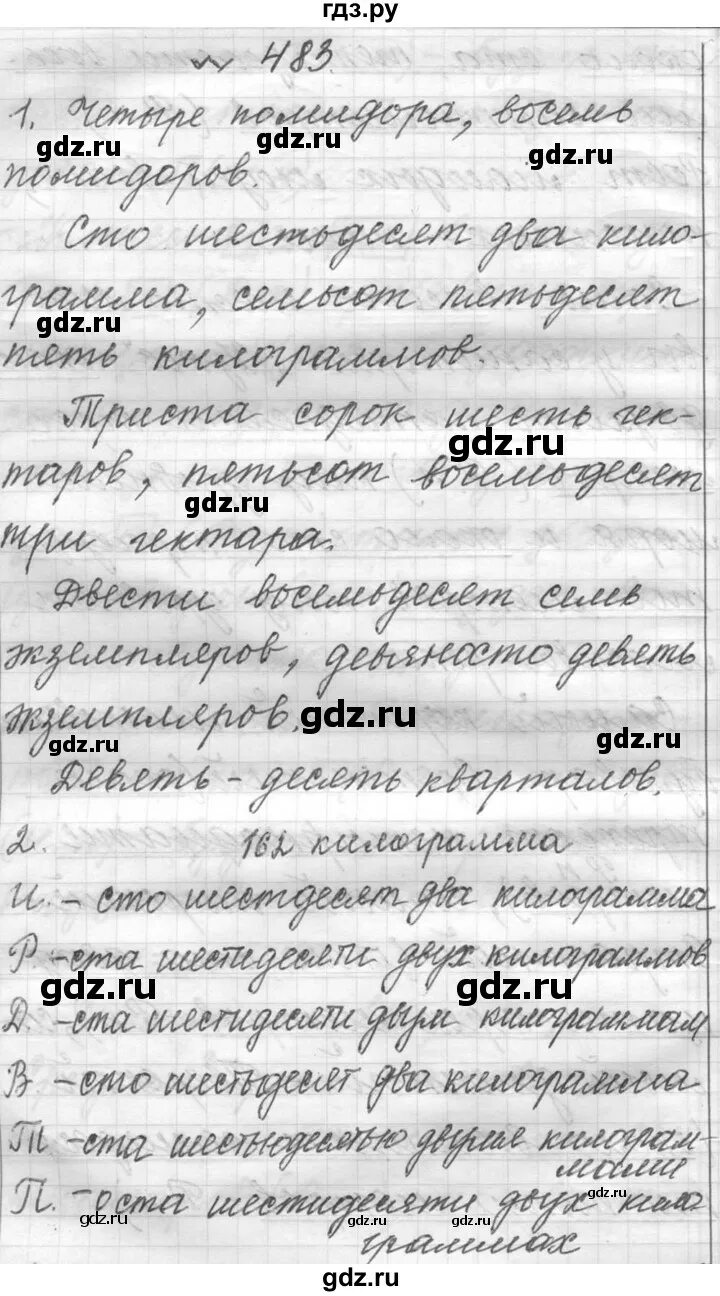 гдз.ру
№ 483.
1. Четыре помидора, восемь
gdz.ru gdz.ru gdz.ru
помидоров.
Сто шестьдесят два кило-
gdz.ru gdz.ru
грамма, семьсот пятьдесят
gdz.ru
пять килограммов.
Триста сорок шесть гек-
gdz.ru
таров, пятьсот восемьдесят
gdz.ru
три гектара.
Двести восемьдесят семь
экземпляров, девяносто девять
экземпляров.
gdz.ru gdz.ru gdz.ru
Девять - десять кварталов.
2. 162 килограмма
И. - сто шестдесят два килограмма
Р - ста шестидесяти двух килограммов
gdz.ru gdz.ru
Д. - ста шестидесяти двум килограммам
В - сто шестьдесят два килограмма
Т - ста шестьюдесятью двумя килограм-
мами
П. - о ста шестидесяти двух кило
gdz.ru gdz.ru gdz.ru gdz.ru
граммах
gdz.ru